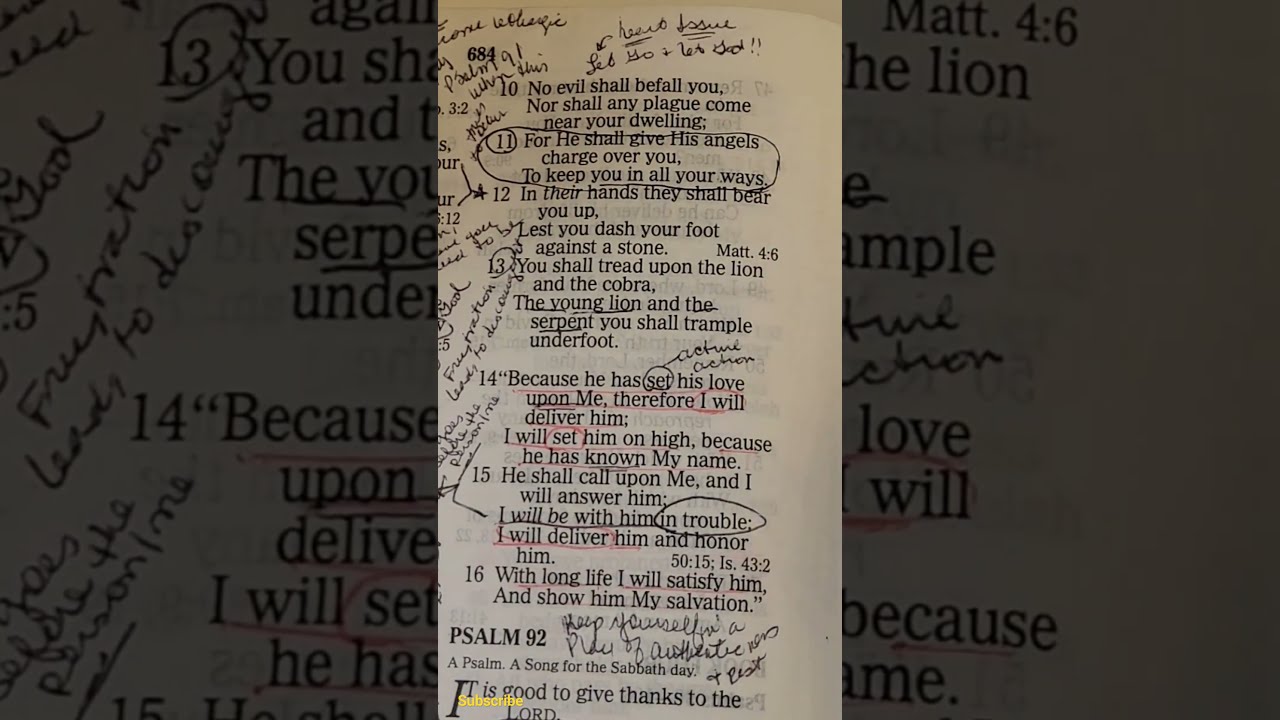 684
Heart Issue
Let Go & let God!!
Psalm 91
when this
is
10 No evil shall befall you,
Nor shall any plague come
near your dwelling;
11 For He shall give His angels
charge over you,
To keep you in all your ways.
12 In their hands they shall bear
you up,
Lest you dash your foot
against a stone. Matt. 4:6
13 You shall tread upon the lion
and the cobra,
The young lion and the
serpent you shall trample
underfoot.
active
action
14 “Because he has set his love
upon Me, therefore I will
deliver him;
I will set him on high, because
he has known My name.
15 He shall call upon Me, and I
will answer him;
I will be with him in trouble;
I will deliver him and honor
him. 50:15; Is. 43:2
16 With long life I will satisfy him,
And show him My salvation.”
keep yourself in a
Place of
& rest
PSALM 92
A Psalm. A Song for the Sabbath day.
IT is good to give thanks to the
LORD,
Subscribe
3:2
6:12
:5
Good
Frustration
leads to
before the
person/me